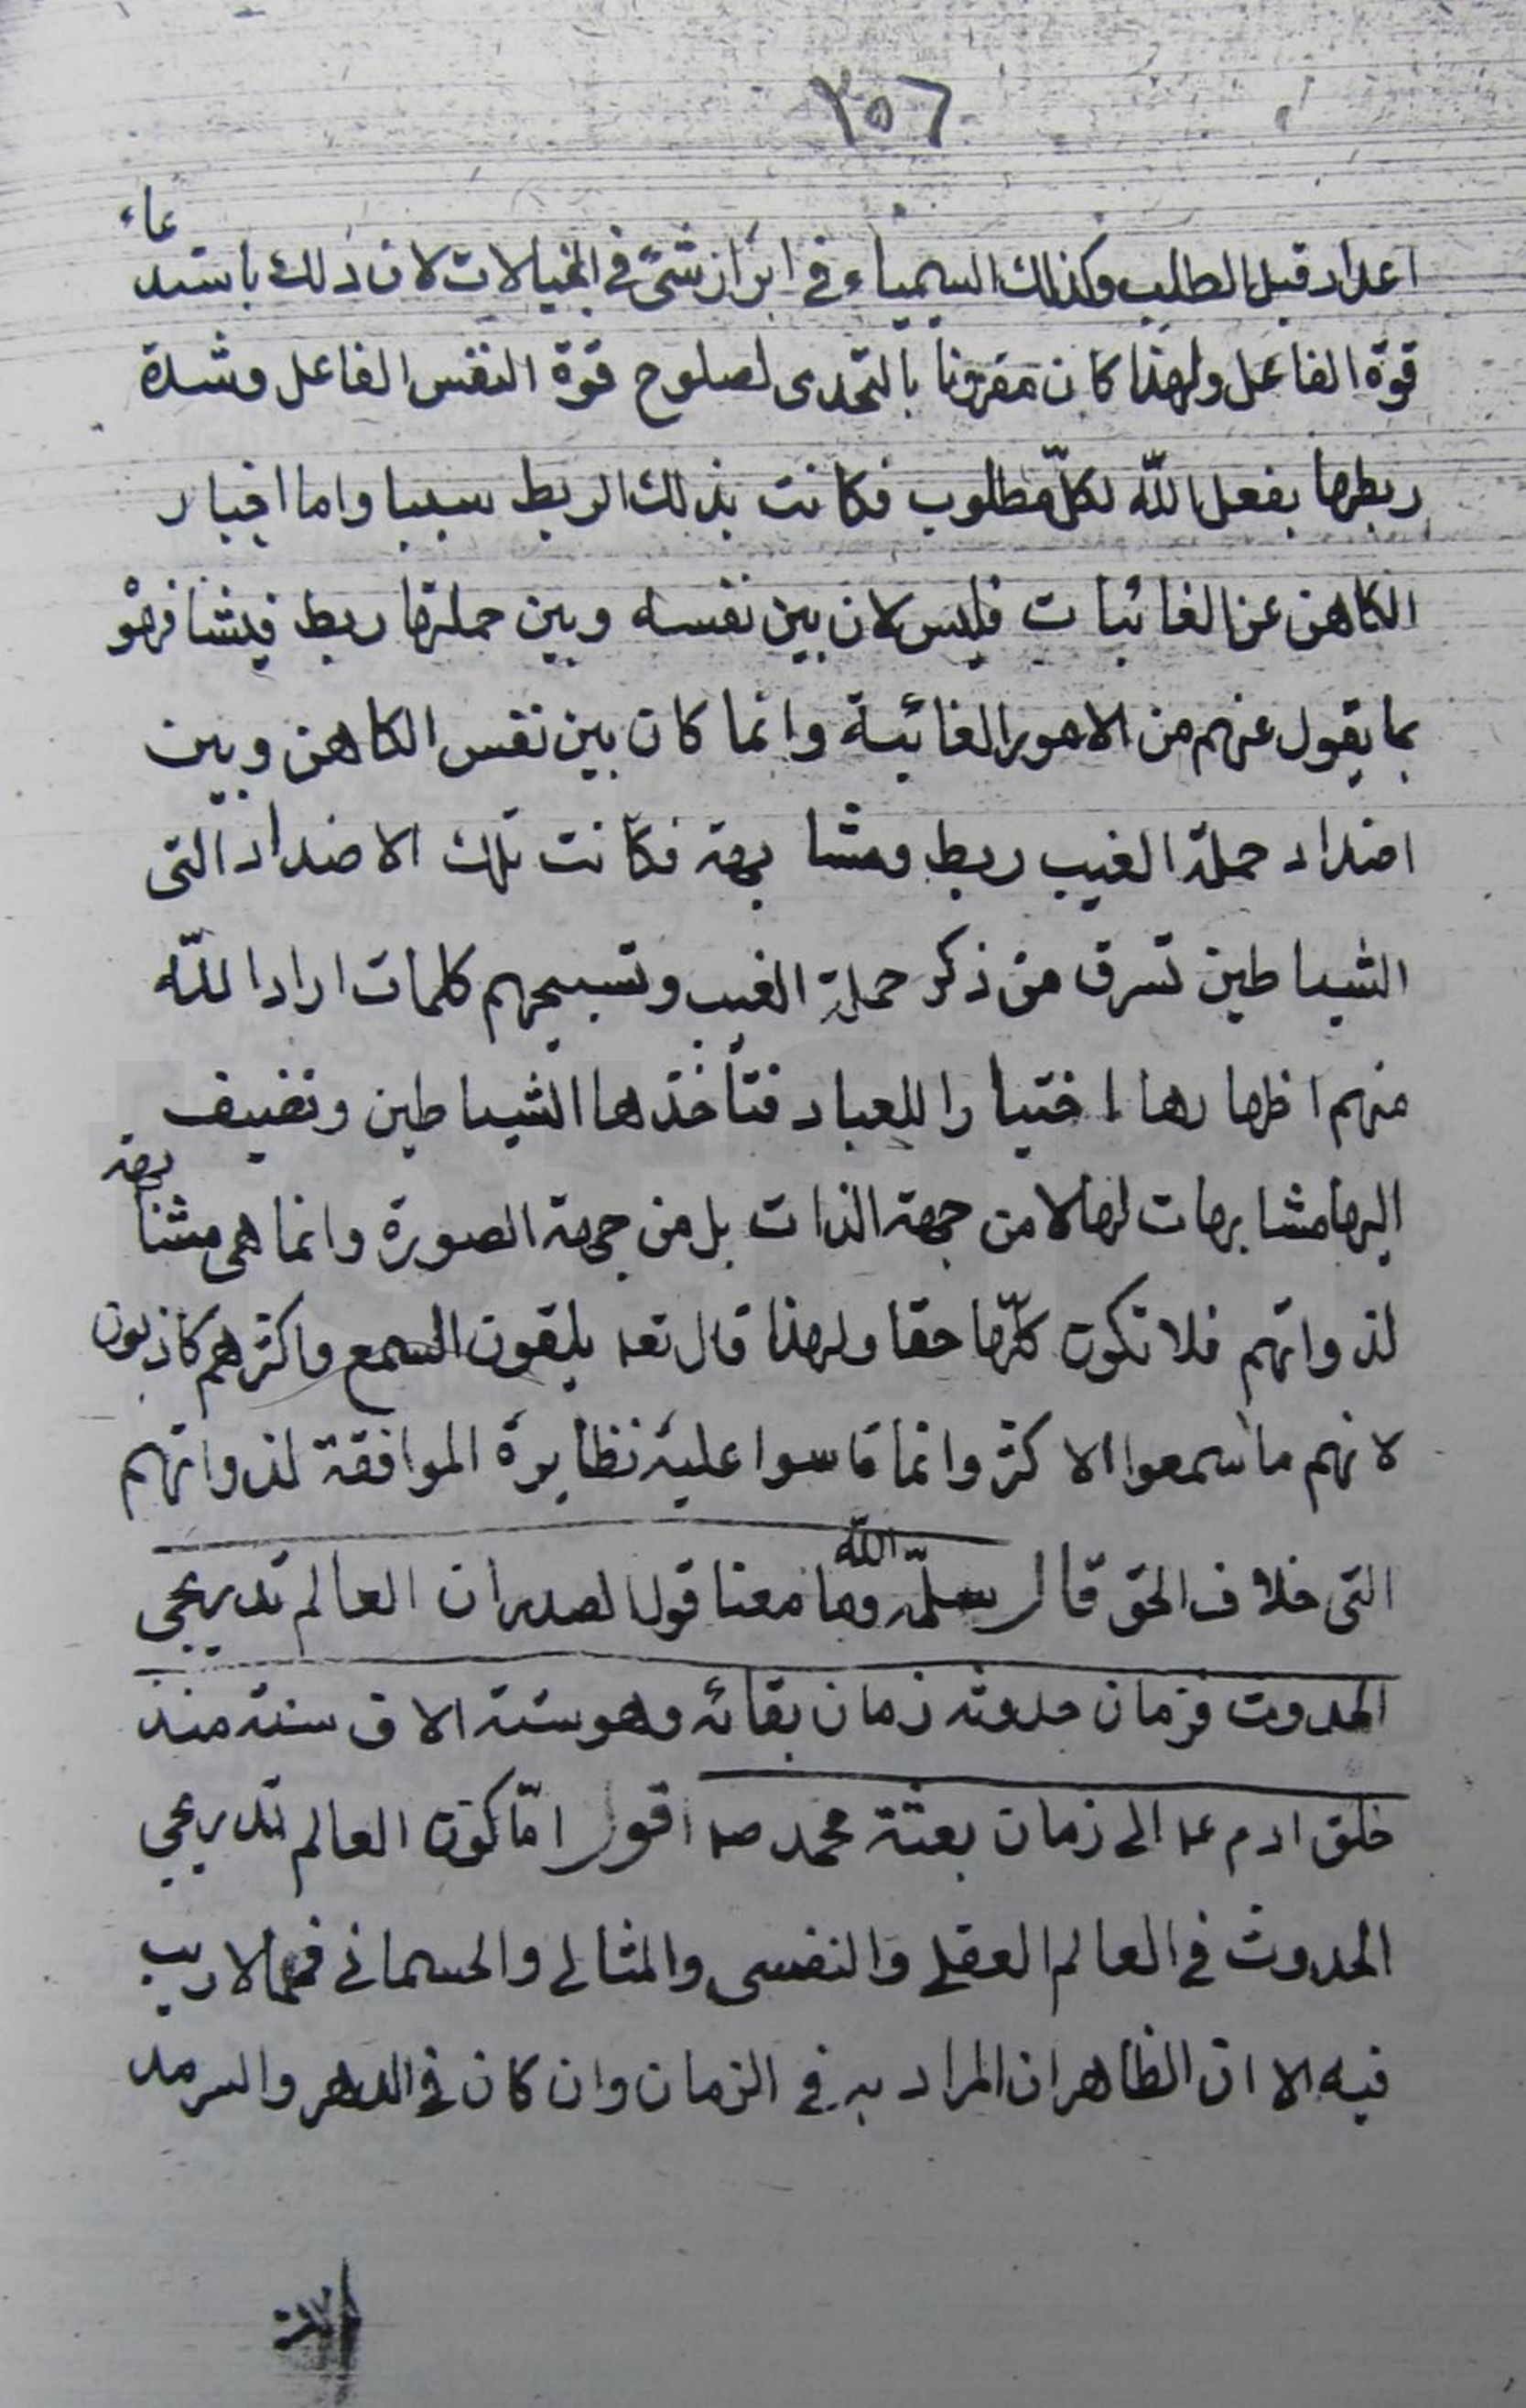 ٢٥٦
اعداد قبل الطلب وكذلك السيمياء في ابراز شئ في الخيالات لان ذلك باستدعاء
قوة الفاعل ولهذا كان مقرونا بالتحدى لصلوح قوة النفس الفاعل وشدة
ربطها بفعل اللّه لكلّ مطلوب فكانت بذلك الربط سببا واما اخبار
الكاهن عن الغائبات فليس لان بين نفسه وبين حملتها ربط
بما يقول عنهم من الامور الغائبة وانما كان بين نفس الكاهن وبين
اضداد حملة الغيب ربط ومشابهة فكانت تلك الاضداد التى
الشياطين تسرق من ذكر حملة الغيب وتسبيحهم كلمات اراد اللّه
منهم اظهارها اختيارا للعباد فتأخذها الشياطين وتضيف
اليها مشابهات لها لا من جهة الذات بل من جهة الصورة وانما هى مشابهة
لذواتهم فلا تكون كلّها حقا ولهذا قال تعه يلقون السمع واكثرهم كاذبون
لانهم ما سمعوا الاكثر وانما قاسوا عليه نظايره الموافقة لذواتهم
التى خلاف الحق قال سلّمه اللّه وما معنا قول الصدر ان العالم تدريجى
الحدوث فزمان حدوثه زمان بقائه وهو ستة الاف سنة منذ
خلق ادم عه الى زمان بعثة محمد صه اقول امّا كون العالم تدريجى
الحدوث في العالم العقلي والنفسى والمثالي والجسماني فمما لا ريب
فيه الا ان الظاهر ان المراد به في الزمان وان كان في الدهر والسرمد